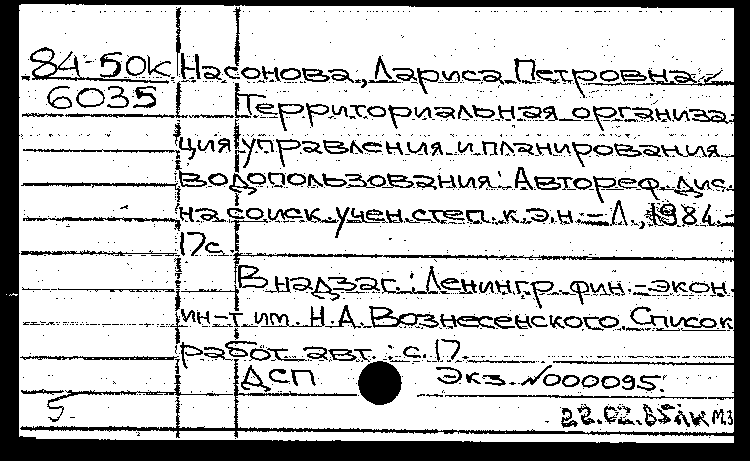 84-50к Насонова, Лариса Петровна
6035 Территориальная организа-
ция управления и планирования
водопользования: Автореф. дис.
на соиск. учен. степ. к.э.н. - Л., 1984. -
17с.
В надзаг.: Ленингр. фин.-экон.
ин-т им. Н.А. Вознесенского. Список
работ авт.: с. 17.
ДСП Экз. №000095.
5 22.02.85